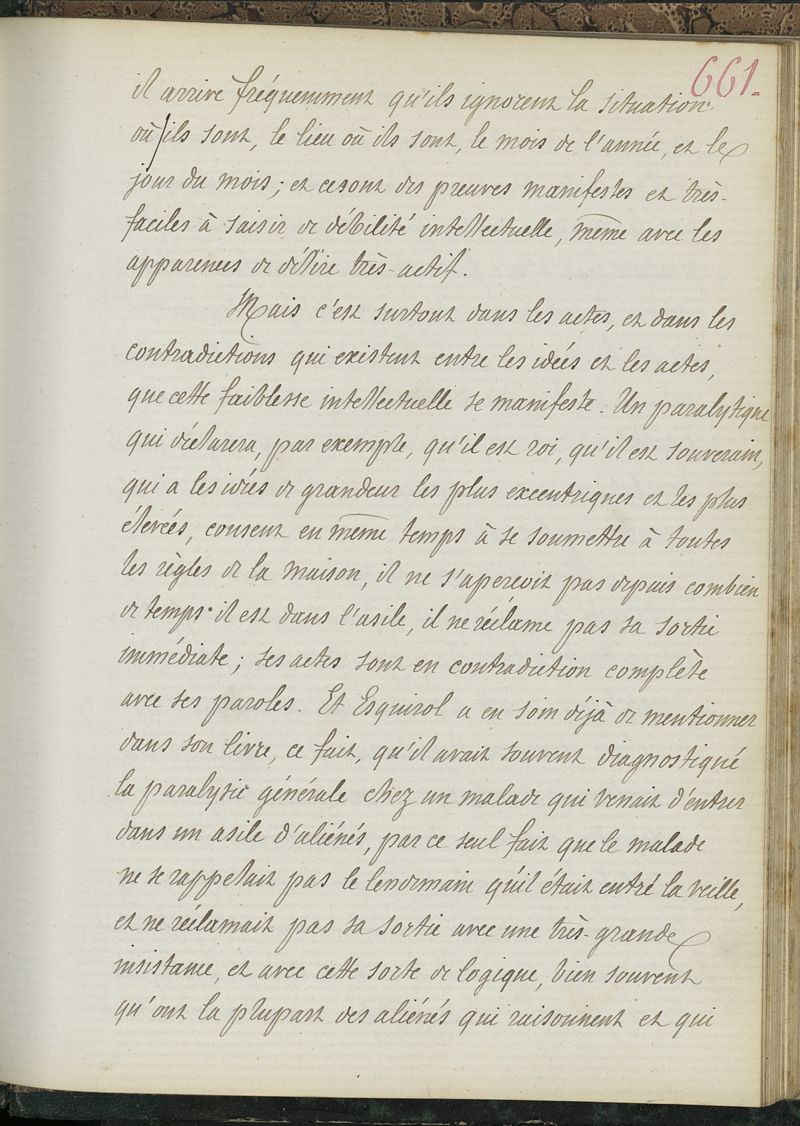 661.
il arrive fréquemment qu'ils ignorent la situation
où ils sont, le lieu où ils sont, le mois de l'année, et le
jour du mois; et ce sont des preuves manifestes et très-
faciles à saisir de débilité intellectuelle, même avec les
apparences de délire très-actif.
Mais c'est surtout dans les actes, et dans les
contradictions qui existent entre les idées et les actes,
que cette faiblesse intellectuelle se manifeste. Un paralytique
qui déclarera, par exemple, qu'il est roi, qu'il est souverain,
qui a les idées de grandeur les plus excentriques et les plus
élevées, consent en même temps à se soumettre à toutes
les règles de la maison, il ne s'aperçoit pas depuis combien
de temps il est dans l'asile, il ne réclame pas sa sortie
immédiate; ses actes sont en contradiction complète
avec ses paroles. Et Esquirol a eu soin déjà de mentionner
dans son livre, ce fait, qu'il avait souvent diagnostiqué
la paralysie générale chez un malade qui venait d'entrer
dans un asile d'aliénés, par ce seul fait que le malade
ne se rappelait pas le lendemain qu'il était entré la veille,
et ne réclamait pas sa sortie avec une très-grande
insistance, et avec cette sorte de logique, bien souvent
qu'ont la plupart des aliénés qui raisonnent et qui